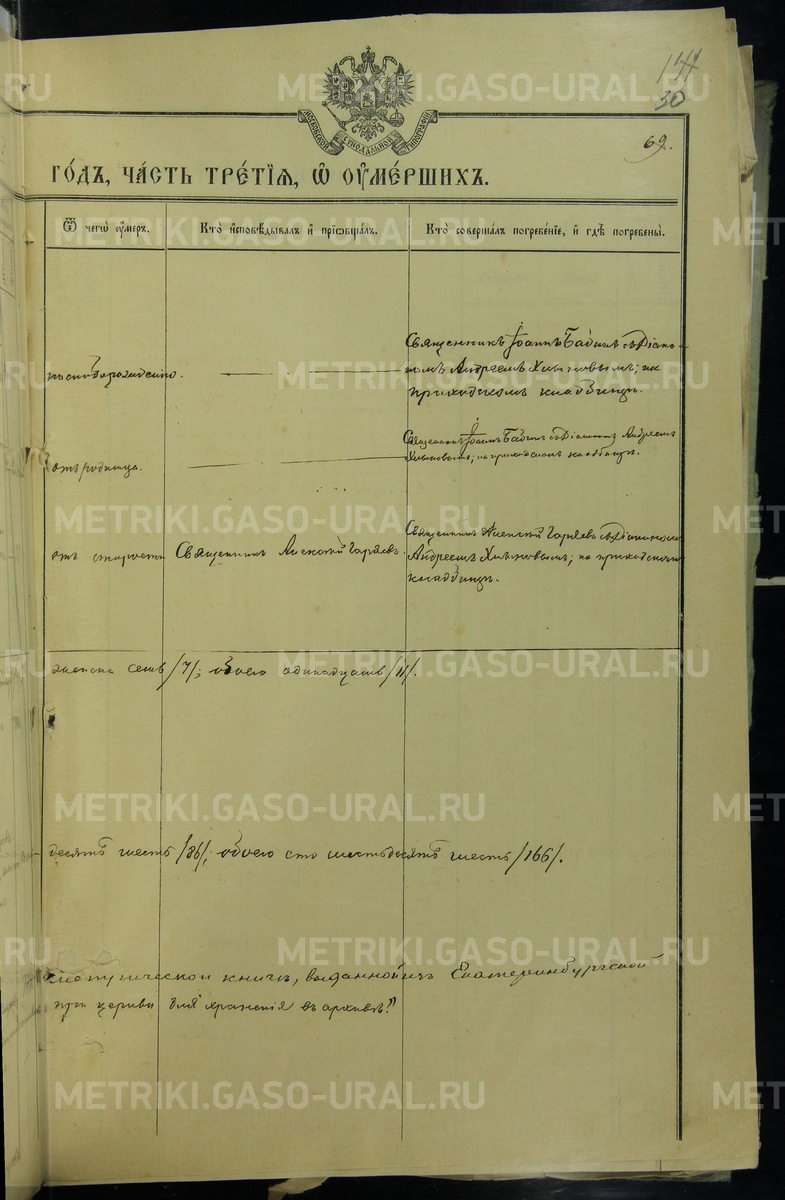 141
30
69.
МОСКОВСКОЙ СѴНОДАЛЬНОЙ ТИПОГРАФІИ
ГО́ДЪ, ЧА́СТЬ ТРЕ́ТІѦ, Ѡ҆ ОУ҆МЕ́РШИХЪ.
Ѿ чегѡ̀ оу҆́меръ.
Кто̀ и҆сповѣ́дывалъ и҆ прїѡбща́лъ.
Кто̀ соверша́лъ погребе́нїе, и҆ гдѣ̀ погребены̀.
Священникъ Іоаннъ съ Діако-
номъ Андреемъ Хлыновымъ; на
приходскомъ кладбищѣ.
отъ родимца.
Священникъ Іоаннъ съ Діакономъ Андреемъ
Хлыновымъ; на приходскомъ кладбищѣ.
отъ старости
Священникъ Алексѣй Гаряевъ.
Священникъ Алексѣй Гаряевъ съ Діакономъ
Андреемъ Хлыновымъ; на приходскомъ
кладбищѣ.
женска семь /7/; обоего одинадцать /11/.
десятъ шесть /86/; обоего сто шестьдесятъ шесть /166/.
метрической книги, выданной изъ Екатеринбургской
при церкви для храненія въ архивѣ."
METRIKI.GASO-URAL.RU